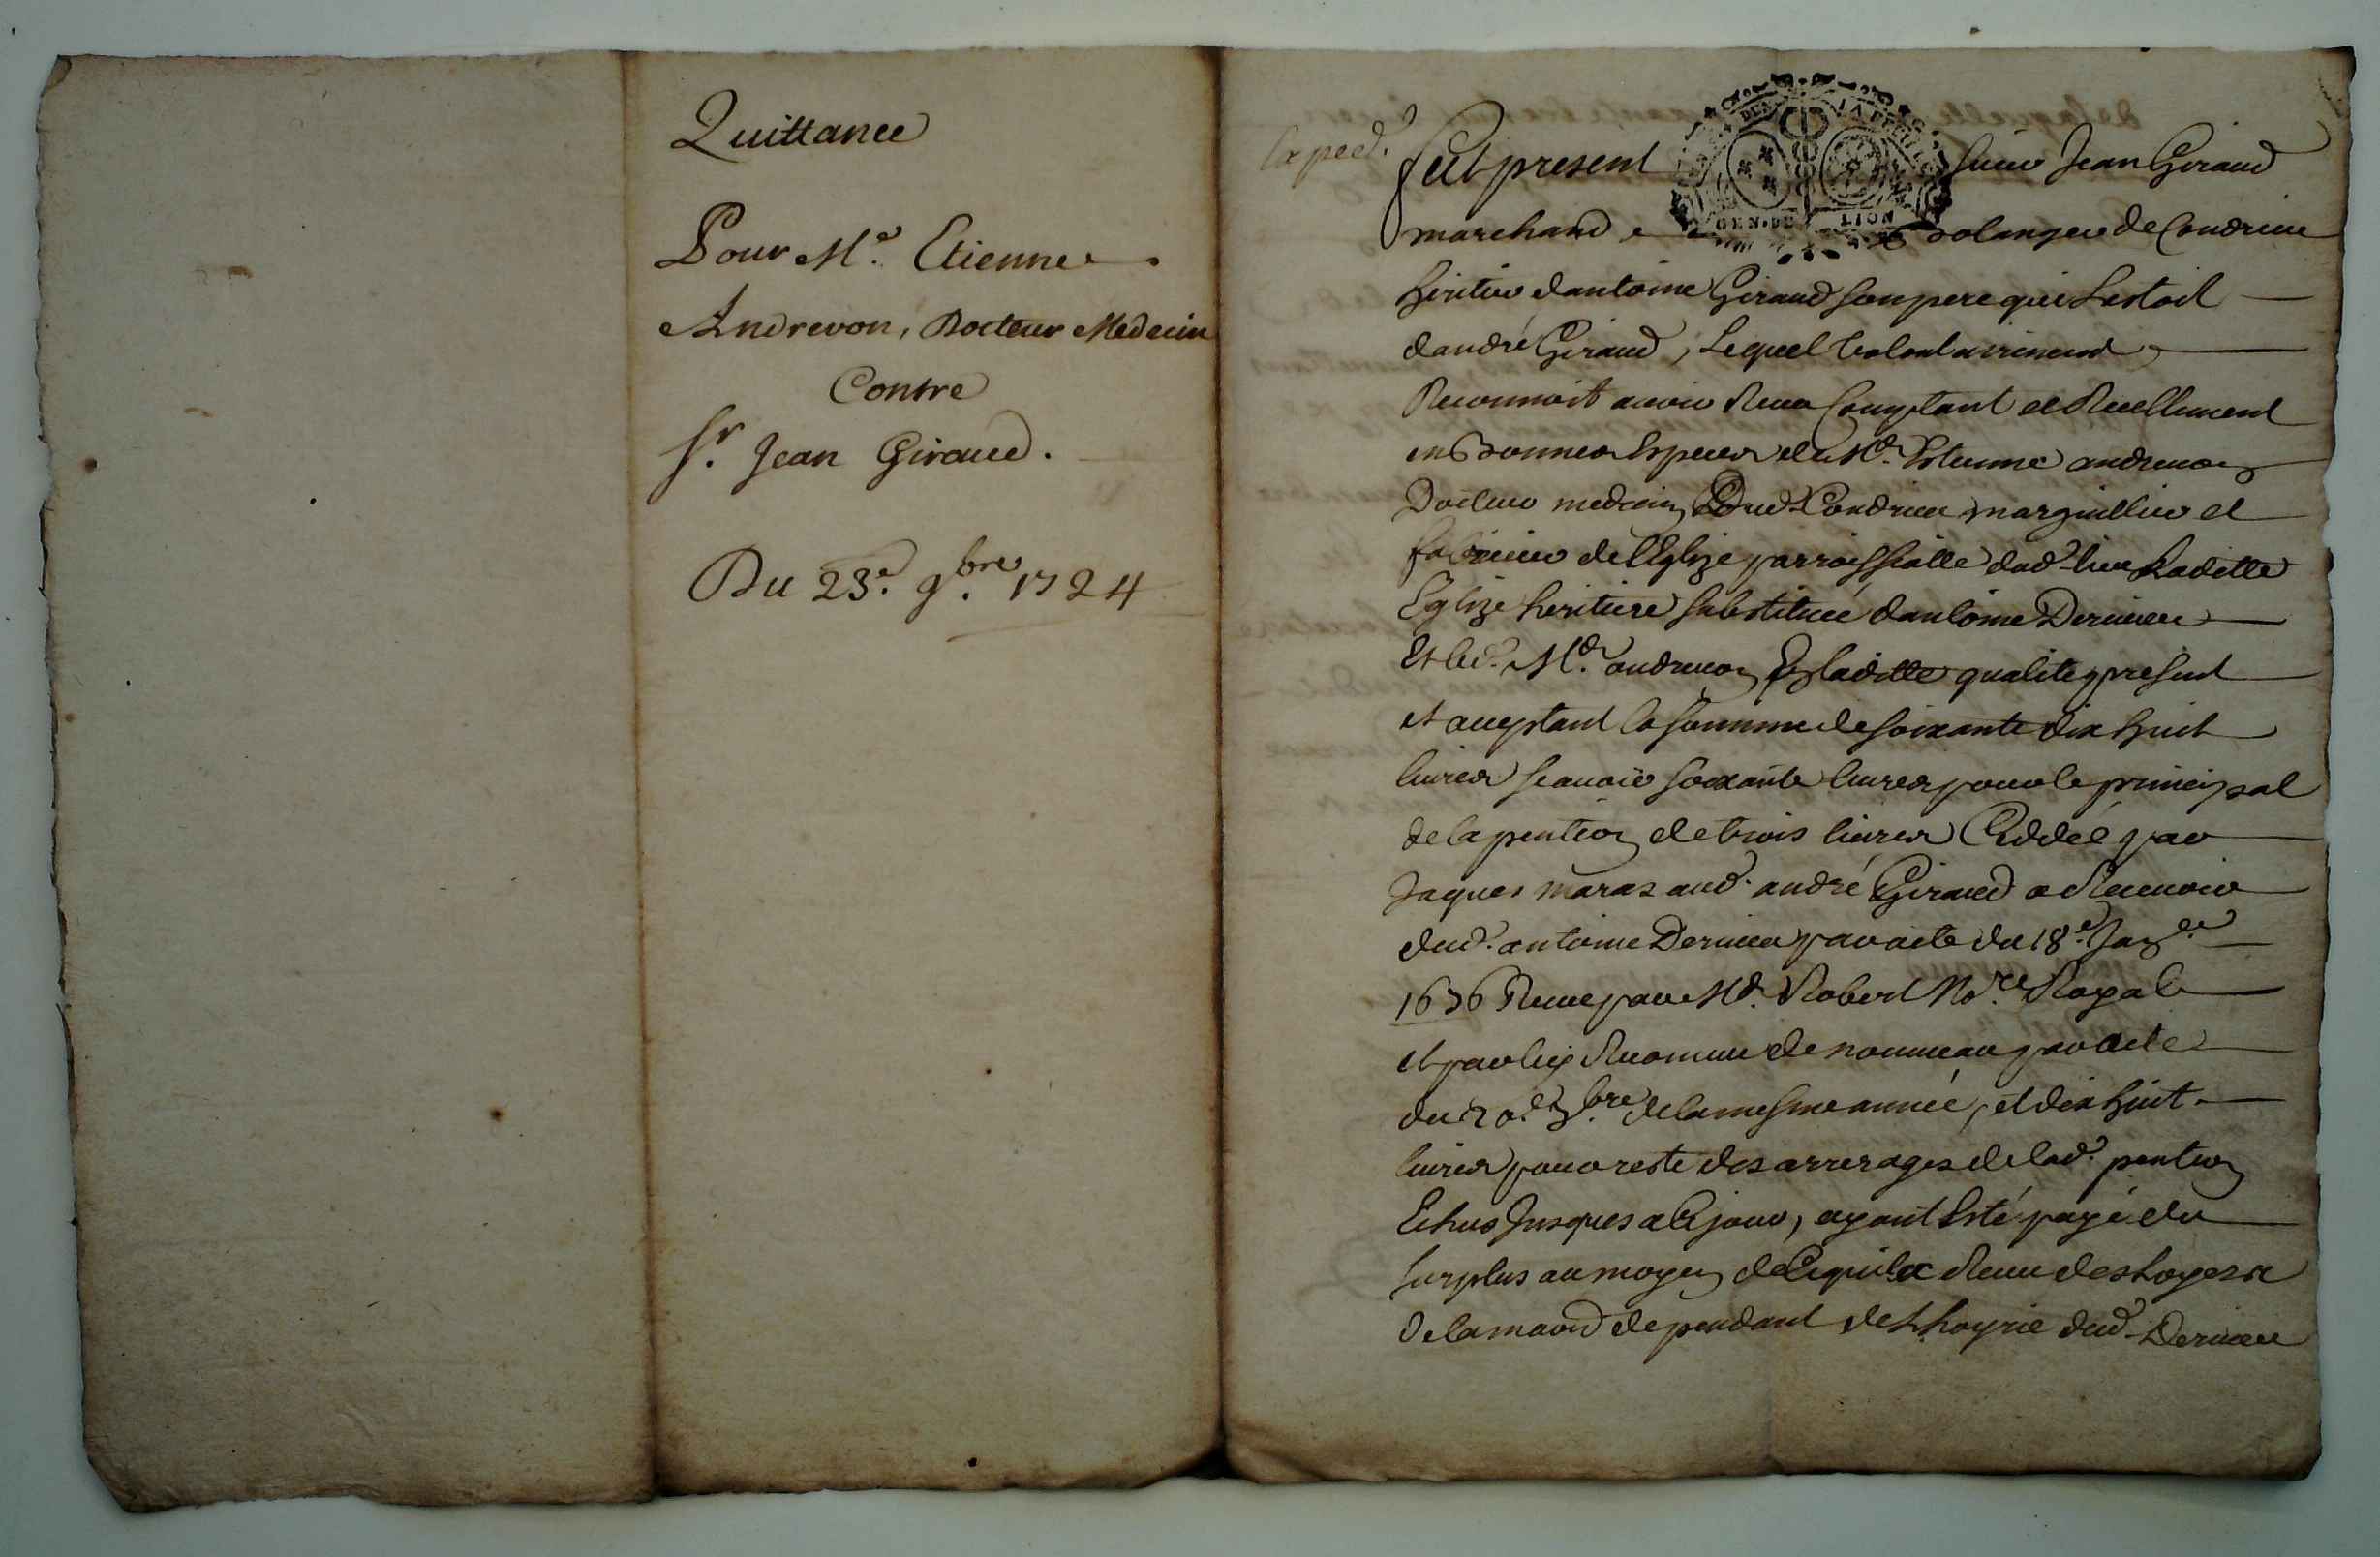 Quittance
Pour Me. Etienne
Andrevon, Docteur Medecin
Contre
Sr. Jean Giraud.
Du 23e. 9bre. 1724
Exped.
fut present sieur Jean Giraud
marchand Bolanger de Condrieu
heritier d'antoine Giraud son pere qui L'estoit
d'andré Giraud, Lequel volontairement
Reconnoit avoir Receu Comptant et Reellement
en Bonnes Especes de Me. Estienne andrevon
Docteur medecin Dud. Condrieu marguillier et
fabricien de l'Eglize parroissialle dud. lieu Laditte
Eglize heritiere substituée d'antoine Dervieu
Et led. Me. andrevon En laditte qualité present
et acceptant la somme de soixante dix huit
livres scavoir soixante livres pour le principal
de la pention de trois livres Ceddée par
Jaques maras aud. andré Giraud a Recevoir
dud. antoine Dervieu par acte du 18e. Janer
1656 Receu par Me. Robert Nore. Royal
et par luy Reconnue de nouveau par acte
du 20e. bre. de la mesme année, et dix huit
livres pour reste des arrerages de lad. pention
Echus Jusques a Ce jour, ayant Esté payé du
surplus au moyen de Ce qu'il a Receu des Loyers
De la maison dependant de L'hoyrie dud. Dervieu
GEN. DE LION